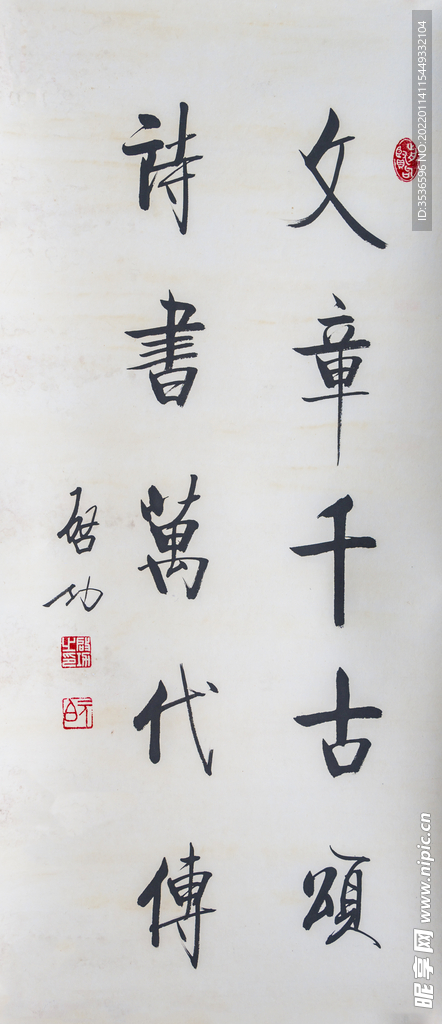 文章千古頌
詩書萬代傳
啓功
啟功之印
元白
ID:3536596 NO:20220114115449332104
昵享网 www.nipic.cn